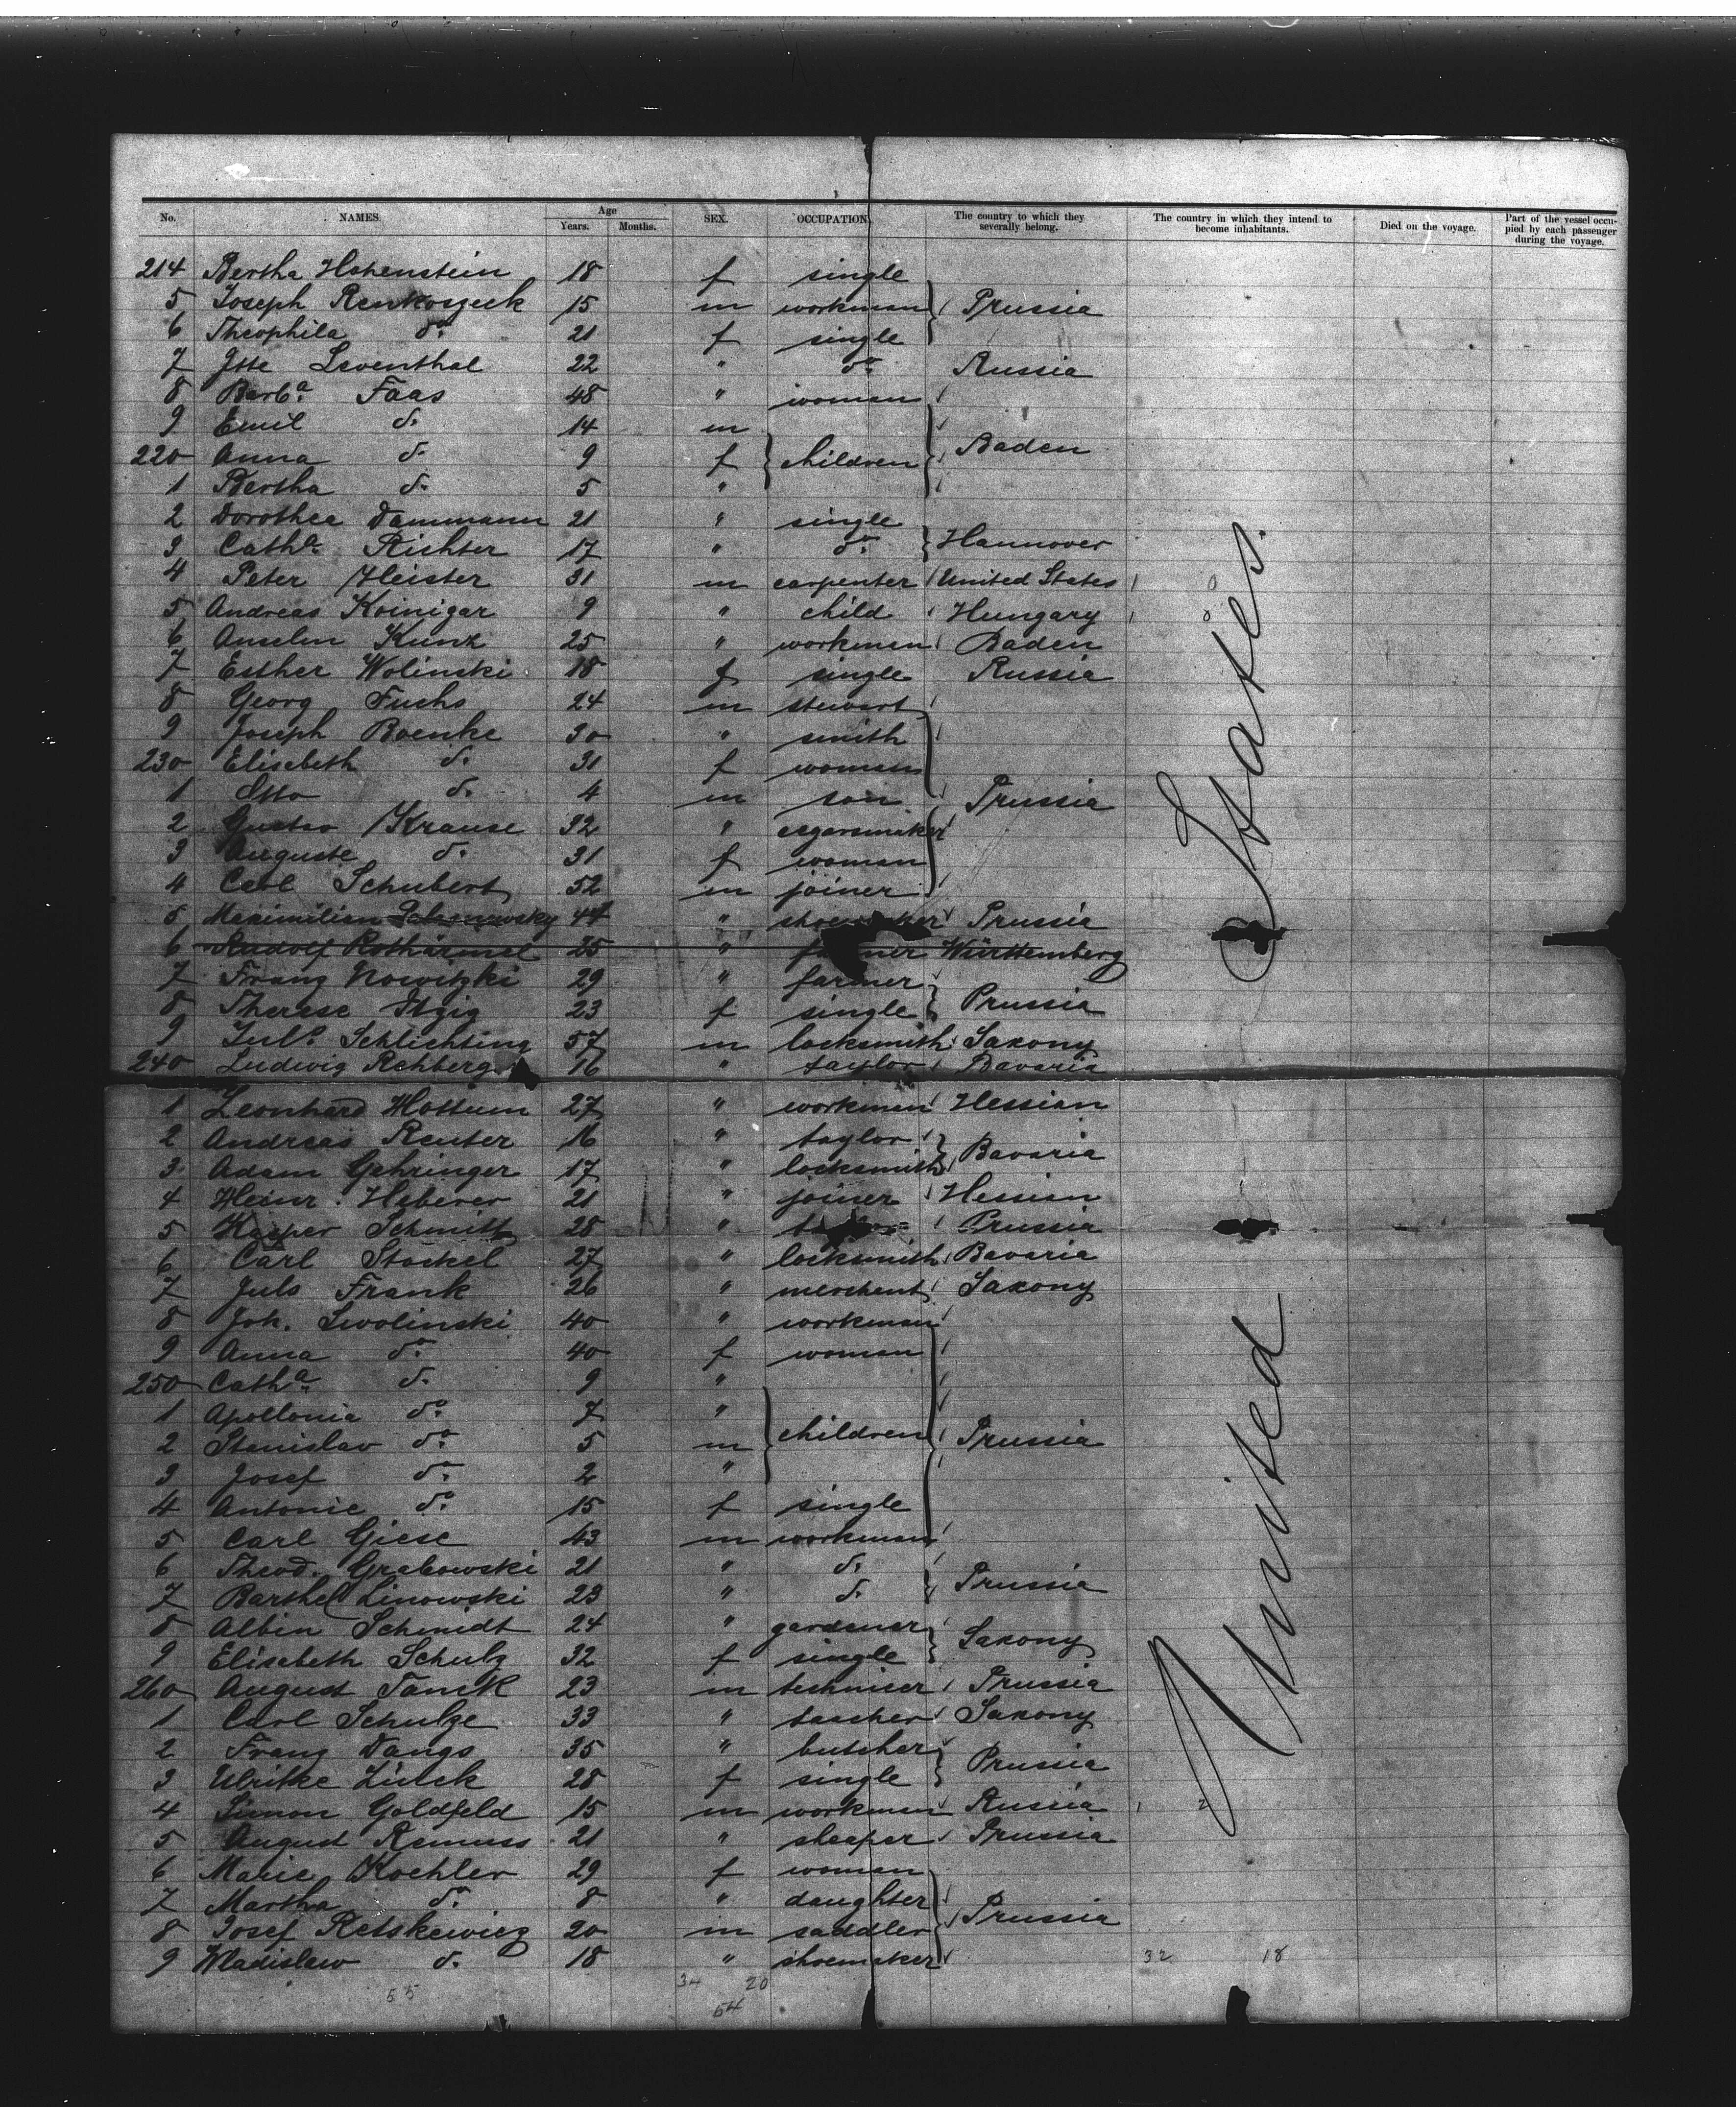 No. NAMES. Age Years. Months. SEX. OCCUPATION. The country to which they severally belong. The country in which they intend to become inhabitants. Died on the voyage. Part of the vessel occupied by each passenger during the voyage.
214 Bertha Hohenstein 18 f single
5 Joseph Renkoszeck 15 m workman Prussia
6 Theophila do. 21 f single
7 Itte Leventhal 22 " do. Russia
8 Barba. Faas 48 " woman
9 Emil d. 14 m
220 Anna d. 9 f children Baden
1 Bertha d. 5 "
2 Dorothea Dammann 21 " single
3 Catha. Richter 17 " do. Hannover
4 Peter Heister 31 m carpenter United States
5 Andreas Koinigar 9 " child Hungary
6 Anselm Kunz 25 " workman Baden
7 Esther Wolinski 18 f single Russia
8 Georg Fuchs 24 m stewart
9 Joseph Boenke 30 " smith
230 Elisabeth d. 31 f woman
1 Otto d. 4 m son Prussia
2 Gustav Krause 32 " cigarsmaker
3 Auguste d. 31 f woman
4 Carl Schubert 52 m joiner
5 Maximilian 44 " shoemaker Prussia
6 Rudolf Rothärmel 25 " farmer Württemberg
7 Franz Nowitzki 29 " farmer
8 Therese Itzig 23 f single Prussia
9 Juls. Schlichting 57 m locksmith Saxony
240 Ludwig Rehberg 16 " taylor Bavaria
1 Leonhard Mottum 27 " workman Hessian
2 Andreas Reuter 16 " taylor
3 Adam Gehringer 17 " locksmith Bavaria
4 Heinr. Heberer 21 " joiner Hessian
5 Kasper Schmitt 28 " Prussia
6 Carl Stöckel 27 " locksmith Bavaria
7 Juls Frank 26 " merchant Saxony
8 Joh. Swolinski 40 " workman
9 Anna do. 40 f woman
250 Catha. d. 9 "
1 Apollonia do. 7 "
2 Stanislav do. 5 m children Prussia
3 Josef do. 2 "
4 Antonie do. 15 f single
5 Carl Giese 43 m workman
6 Theod. Grabowski 21 " d.
7 Barthel Linowski 23 " d. Prussia
8 Albin Schmidt 24 " gardener
9 Elisabeth Schulz 32 f single Saxony
260 August Tanck 23 m technicer Prussia
1 Carl Schulze 33 " teacher Saxony
2 Franz Dangs 35 " butcher
3 Ulrike Lück 28 f single Prussia
4 Simon Goldfeld 15 m workman Russia
5 August Remuss 21 " sheaper Prussia
6 Marie Koehler 29 f woman
7 Martha d. 8 " daughter
8 Josef Retskewicz 20 m saddler Prussia
9 Wladislaw d. 18 " shoemaker
United States.
32 18
55 34 20
54